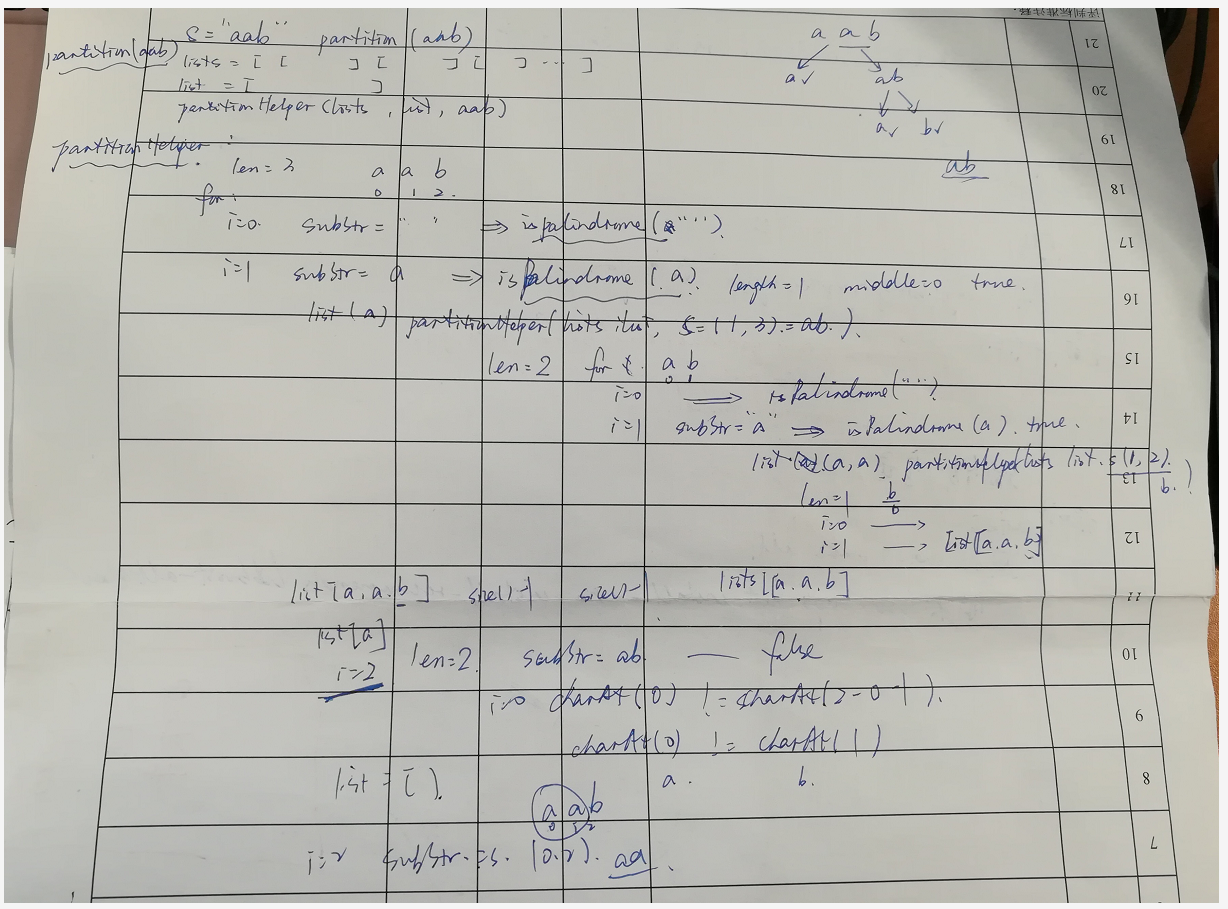 S = "aab" partition (aab)
partition(aab)
lists = [ [ ] [ ] [ ] ... ]
list = [ ]
partitionHelper (lists , list, aab)
a a b
a✓ ab
a✓ b✓
ab
partitionHelper :
len = 3 a a b
for: 0 1 2.
i=0. substr = " " => ispalindrome ("").
i=1 substr = a => isPalindrome (a). length = 1 middle=0 true.
list (a) partitionHelper( lists list, S=(1,3)=ab.).
len=2 for a b
0 1
i=0 isPalindrome("")
i=1 substr="a" => isPalindrome (a). true.
list (a,a) partitionHelper(lists list. s(1,2).
b. )
len=1 b
0
i=0 →
i=1 → list[a.a.b]
list[a,a.b] size()-1 size()-1 lists[[a.a.b]
list[a]
i=2 len=2. substr= ab — false
i=0 charAt(0) != charAt(2-0-1).
charAt(0) != charAt(1)
a. b.
list = [ ].
a a b
0 1 2
i=2 substr = s. (0.2). aa.
21
20
19
18
17
16
15
14
13
12
11
10
9
8
7